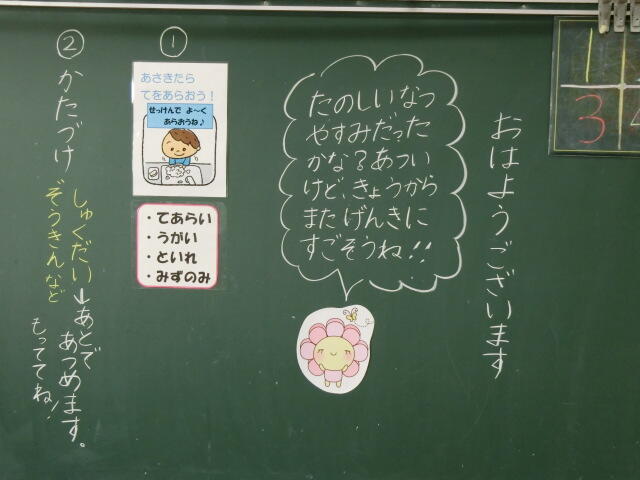 おはようございます
たのしいなつ
やすみだった
かな?あつい
けど、きょうから
またげんきに
すごそうね!!
①
あさきたら
てをあらおう！
せっけんで よ～く
あらおうね♪
・てあらい
・うがい
・といれ
・みずのみ
② かたづけ
しゅくだい→あとで
あつめます。
もっててね!
ぞうきんなど
1
3 4